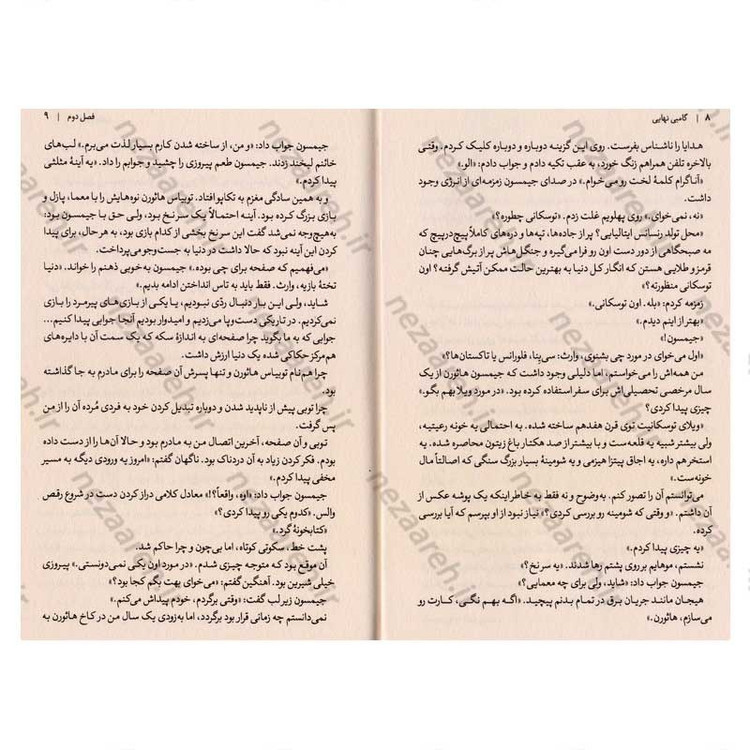 ۸ | گامبی نهایی
هدایا را ناشناس بفرست. روی این گزینه دوباره و دوباره کلیک کردم، وقتی
بالاخره تلفن همراهم زنگ خورد، به عقب تکیه دادم و جواب دادم: «الو.»
«آناگرام کلمهٔ لخت رو می‌خوام.» در صدای جیمسون زمزمه‌ای از انرژی وجود
داشت.
«نه، نمی‌خوای.» روی پهلویم غلت زدم. «توسکانی چطوره؟»
«محل تولد رنسانس ایتالیایی؟ پر از جاده‌ها، تپه‌ها و دره‌های کاملاً پیچ‌درپیچ که
مه صبحگاهی از دور دست اون رو فرا می‌گیره و جنگل‌هاش پر از برگ‌هایی چنان
قرمز و طلایی هستن که انگار کل دنیا به بهترین حالت ممکن آتیش گرفته؟ اون
توسکانی منظورته؟»
زمزمه کردم: «بله. اون توسکانی.»
«بهتر از اینم دیدم.»
«جیمسون!»
«اول می‌خوای در مورد چی بشنوی، وارث: سی‌ینا، فلورانس یا تاکستان‌ها؟»
من همه‌اش را می‌خواستم، اما دلیلی وجود داشت که جیمسون هاثورن از یک
سال مرخصی تحصیلی‌اش برای سفر استفاده کرده بود. «در مورد ویلا بهم بگو،»
چیزی پیدا کردی؟
«ویلای توسکانیت توی قرن هفدهم ساخته شده. به احتمالی یه خونه رعیتیه،
ولی بیشتر شبیه یه قلعه‌ست و با بیشتر از صد هکتار باغ زیتون محاصره شده.
استخر هم داره، یه اجاق پیتزا هیزمی و یه شومینهٔ بسیار بزرگ سنگی که اصالتاً مال
خونه‌ست.»
می‌توانستم آن را تصور کنم. به‌وضوح و نه فقط به خاطر اینکه یک پوشه عکس از
آن داشتم. «و وقتی که شومینه رو بررسی کردی؟» نیاز نبود از او بپرسم که آیا بررسی
کرده.
«یه چیزی پیدا کردم.»
نشستم، موهایم بر روی پشتم رها شدند. «یه سرنخ؟»
جیمسون جواب داد: «شاید، ولی برای چه معمایی؟»
هیجان مانند جریان برق در تمام بدنم پیچید. «اگه بهم نگی، کارت رو
می‌سازم، هاثورن.»
فصل دوم | ۹
جیمسون جواب داد: «و من، از ساخته شدن کارم بسیار لذت می‌برم.» لب‌های
خائنم لبخند زدند. جیمسون طعم پیروزی را چشید و جوابم را داد. «یه آینهٔ مثلثی
پیدا کردم.»
و به همین سادگی مغزم به تکاپو افتاد. توبیاس هاثورن نوه‌هایش را با معما، پازل و
بازی بزرگ کرده بود. آینه احتمالاً یک سرنخ بود، ولی حق با جیمسون بود:
به‌هیچ‌وجه نمی‌شد گفت این سرنخ بخشی از کدام بازی بود، به هر حال، برای پیدا
کردن این آینه نبود که حالا داشت در دنیا به جست‌وجو می‌پرداخت.
«می‌فهمیم که صفحه برای چی بوده.» جیمسون به‌خوبی ذهنم را خواند. «دنیا
تختهٔ بازیه، وارث. فقط باید به تاس انداختن ادامه بدیم.»
شاید، ولی این بار دنبال ردّی نبودیم، یا یکی از بازی‌های پیرمرد را بازی
نمی‌کردیم. در تاریکی دست‌وپا می‌زدیم و امیدوار بودیم آنجا جوابی پیدا کنیم…
جوابی که به ما بگوید چرا صفحه‌ای به اندازهٔ سکه که یک سمت آن با دایره‌های
هم‌مرکز حکاکی شده، یک دنیا ارزش داشت.
چرا هم‌نام توبیاس هاثورن و تنها پسرش آن صفحه را برای مادرم به جا گذاشته
بود.
چرا توبی پیش از ناپدید شدن و دوباره تبدیل کردن خود به فردی مُرده آن را از من
پس گرفت.
توبی و آن صفحه، آخرین اتصال من به مادرم بود و حالا آن‌ها را از دست داده
بودم. فکر کردن زیاد به آن دردناک بود. ناگهان گفتم: «امروز یه ورودی دیگه به مسیر
مخفی پیدا کردم.»
جیمسون جواب داد: «اوه، واقعاً؟!» معادل کلامی دراز کردن دست در شروع رقص
والس. «کدوم یکی رو پیدا کردی؟»
«کتابخونهٔ گرد.»
پشت خط، سکوتی کوتاه، اما بی‌چون و چرا حاکم شد.
آن موقع بود که متوجه چیزی شدم. «در مورد اون یکی نمی‌دونستی.» پیروزی
خیلی شیرین بود. آهنگین گفتم: «می‌خوای بهت بگم کجا بود؟»
جیمسون زیر لب گفت: «وقتی برگردم، خودم پیداش می‌کنم.»
نمی‌دانستم چه زمانی قرار بود برگردد، اما به‌زودی یک سال من در کاخ هاثورن به
nezaareh.ir